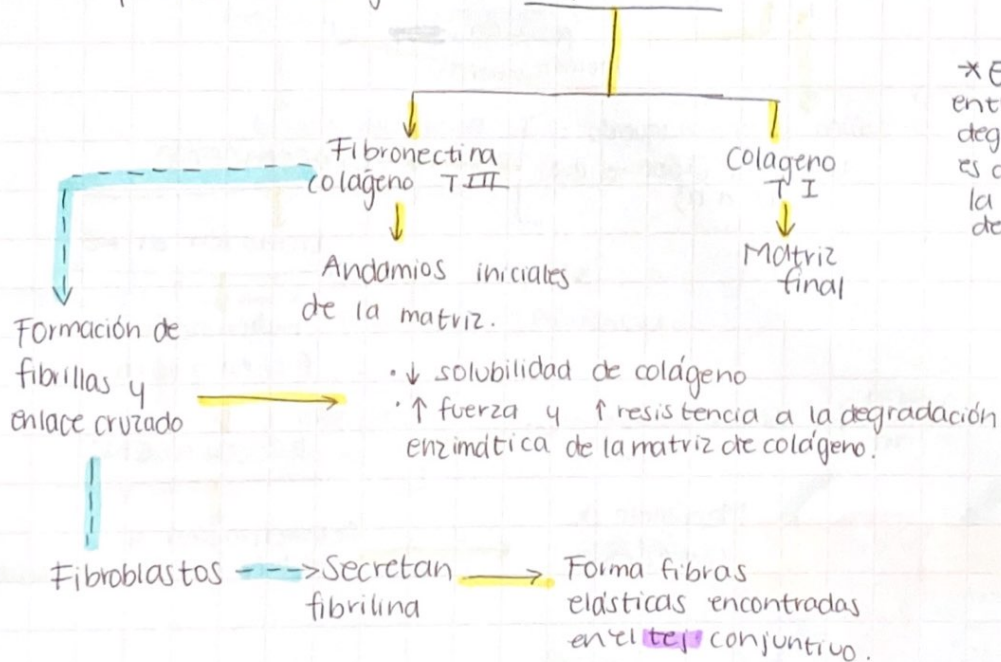 Fibronectina
colágeno T III
Colageno
T I
Andamios iniciales
de la matriz.
Matriz
final
Formación de
fibrillas y
enlace cruzado
· ↓ solubilidad de colágeno
· ↑ fuerza y ↑ resistencia a la degradación
enzimática de la matriz de colágeno.
Fibroblastos
Secretan
fibrilina
Forma fibras
elásticas encontradas
en el tej conjuntivo.
es
la
de